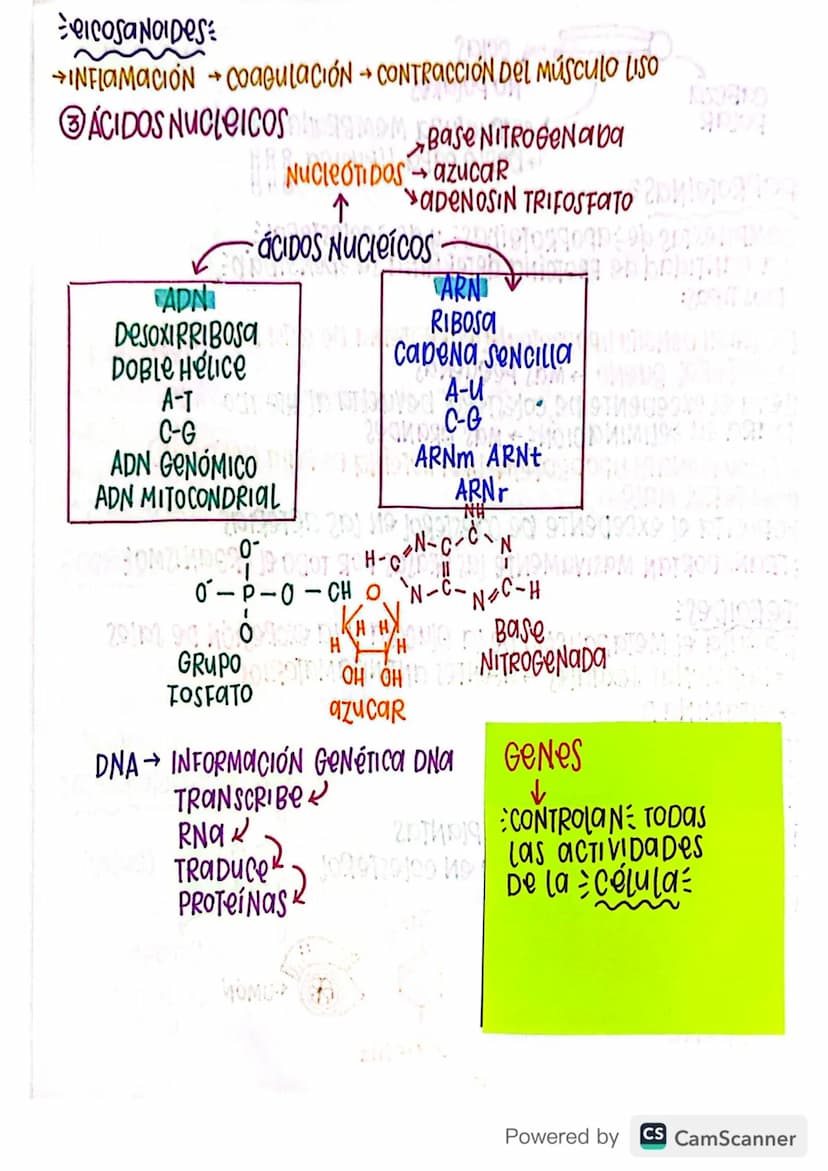 EICOSANOIDES
→ INFLAMACIÓN → COAGULACIÓN → CONTRACCIÓN DEL MÚSCULO LISO
③ ÁCIDOS NUCLEICOS
NUCLEÓTIDOS
↗ BASE NITROGENADA
→ AZUCAR
↘ ADENOSIN TRIFOSFATO
ÁCIDOS NUCLEÍCOS
ADN
DESOXIRRIBOSA
DOBLE HÉLICE
A-T
C-G
ADN GENÓMICO
ADN MITOCONDRIAL
ARN
RIBOSA
CADENA SENCILLA
A-U
C-G
ARNm ARNt
ARNr
O-
O- - P - O - CH
O
GRUPO
FOSFATO
O
H H
H H
OH OH
AZUCAR
NH
H-C N-C-C N
N-C-N C-H
BASE
NITROGENADA
DNA → INFORMACIÓN GENÉTICA DNA
TRANSCRIBE
RNA
TRADUCE
PROTEÍNAS
GENES
↓
CONTROLAN TODAS
LAS ACTIVIDADES
DE LA CÉLULA
Powered by CS CamScanner